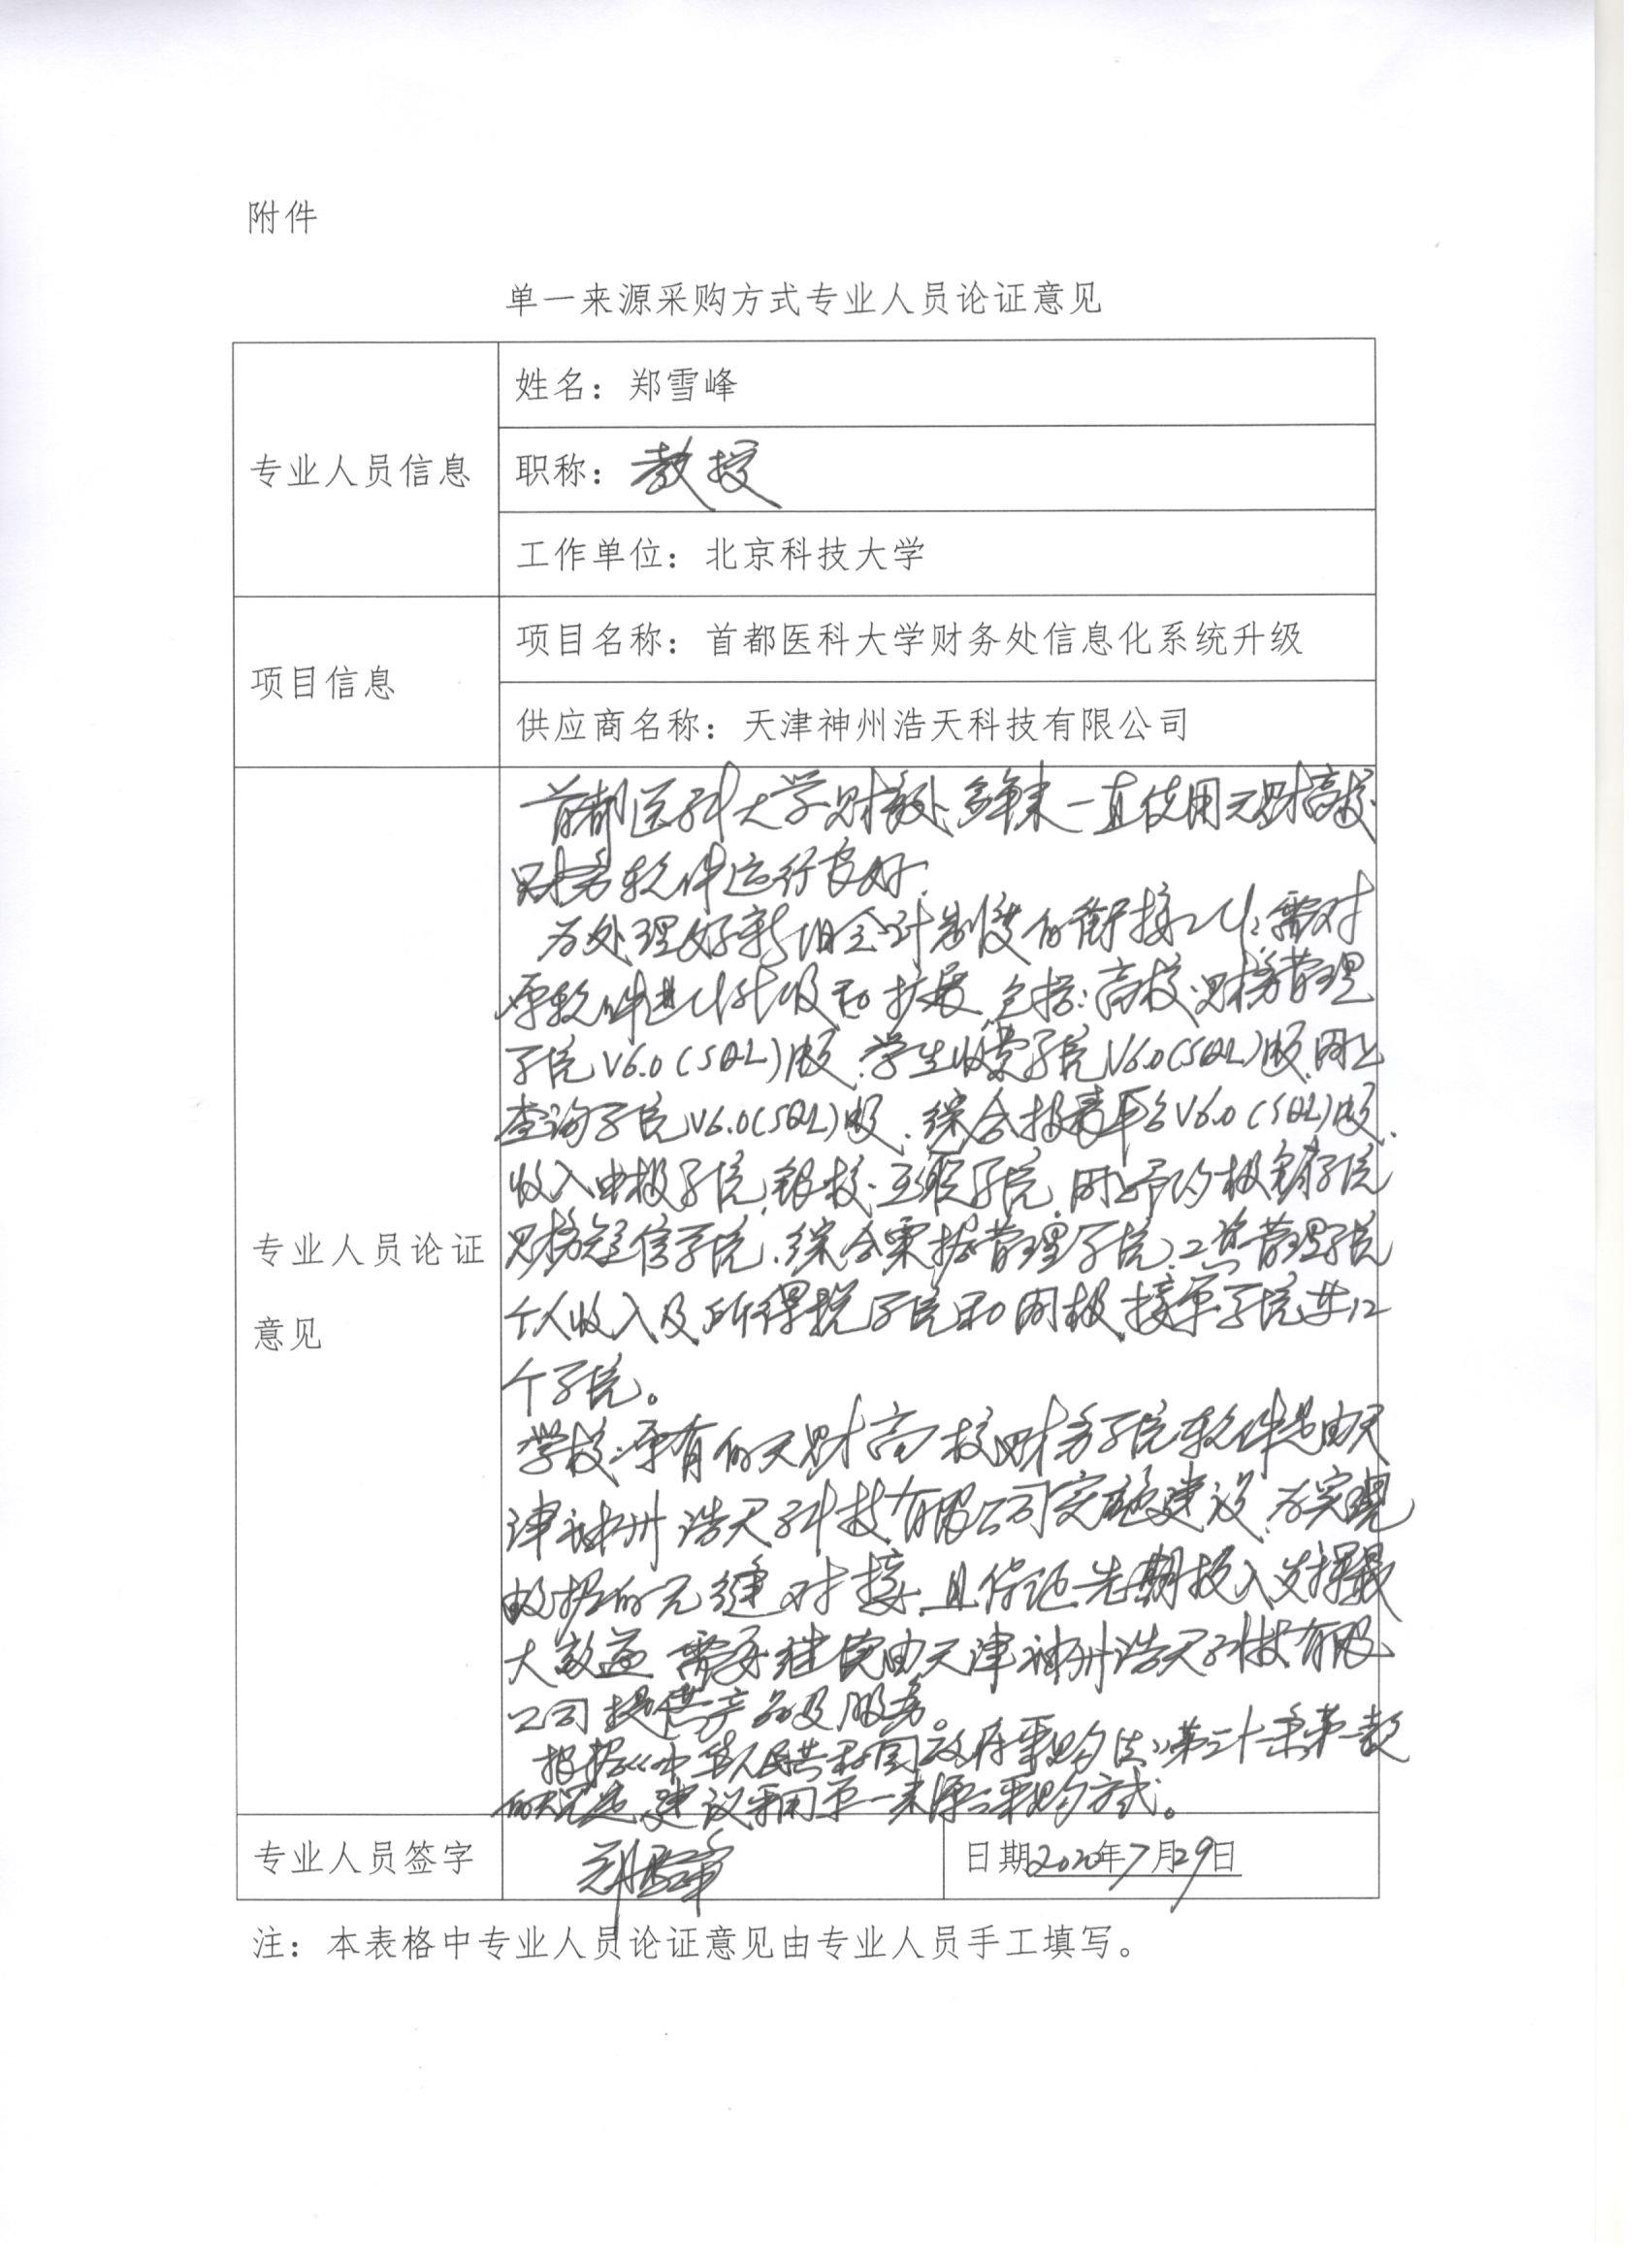 附件
单一来源采购方式专业人员论证意见
专业人员信息
姓名：郑雪峰
职称：教授
工作单位：北京科技大学
项目信息
项目名称：首都医科大学财务处信息化系统升级
供应商名称：天津神州浩天科技有限公司
专业人员论证
意见
首都医科大学财务处多年来一直使用天财高校
财务软件运行良好.
为处理好新旧会计制度的衔接工作需对
原软件进行升级和扩展,包括:高校财务管理
系统V6.0(SQL)版、学生收费系统V6.0(SQL)版、网上
查询系统V6.0(SQL)版、综合报表平台V6.0(SQL)版、
收入申报系统、银校互联系统、网上预约报销系统
财务短信系统、综合票据管理系统、工资管理系统
个人收入及所得税系统和网报接单系统共12
个系统。
学校原有的天财高校财务系统软件是由天
津神州浩天科技有限公司实施建设,为实现
数据的无缝对接,且保证先期投入发挥最
大效益需要继续由天津神州浩天科技有限
公司提供产品及服务。
根据《中华人民共和国政府采购法》第三十一条第一款
的规定,建议采用单一来源采购方式。
专业人员签字
郑雪峰
日期2020年7月29日
注：本表格中专业人员论证意见由专业人员手工填写。